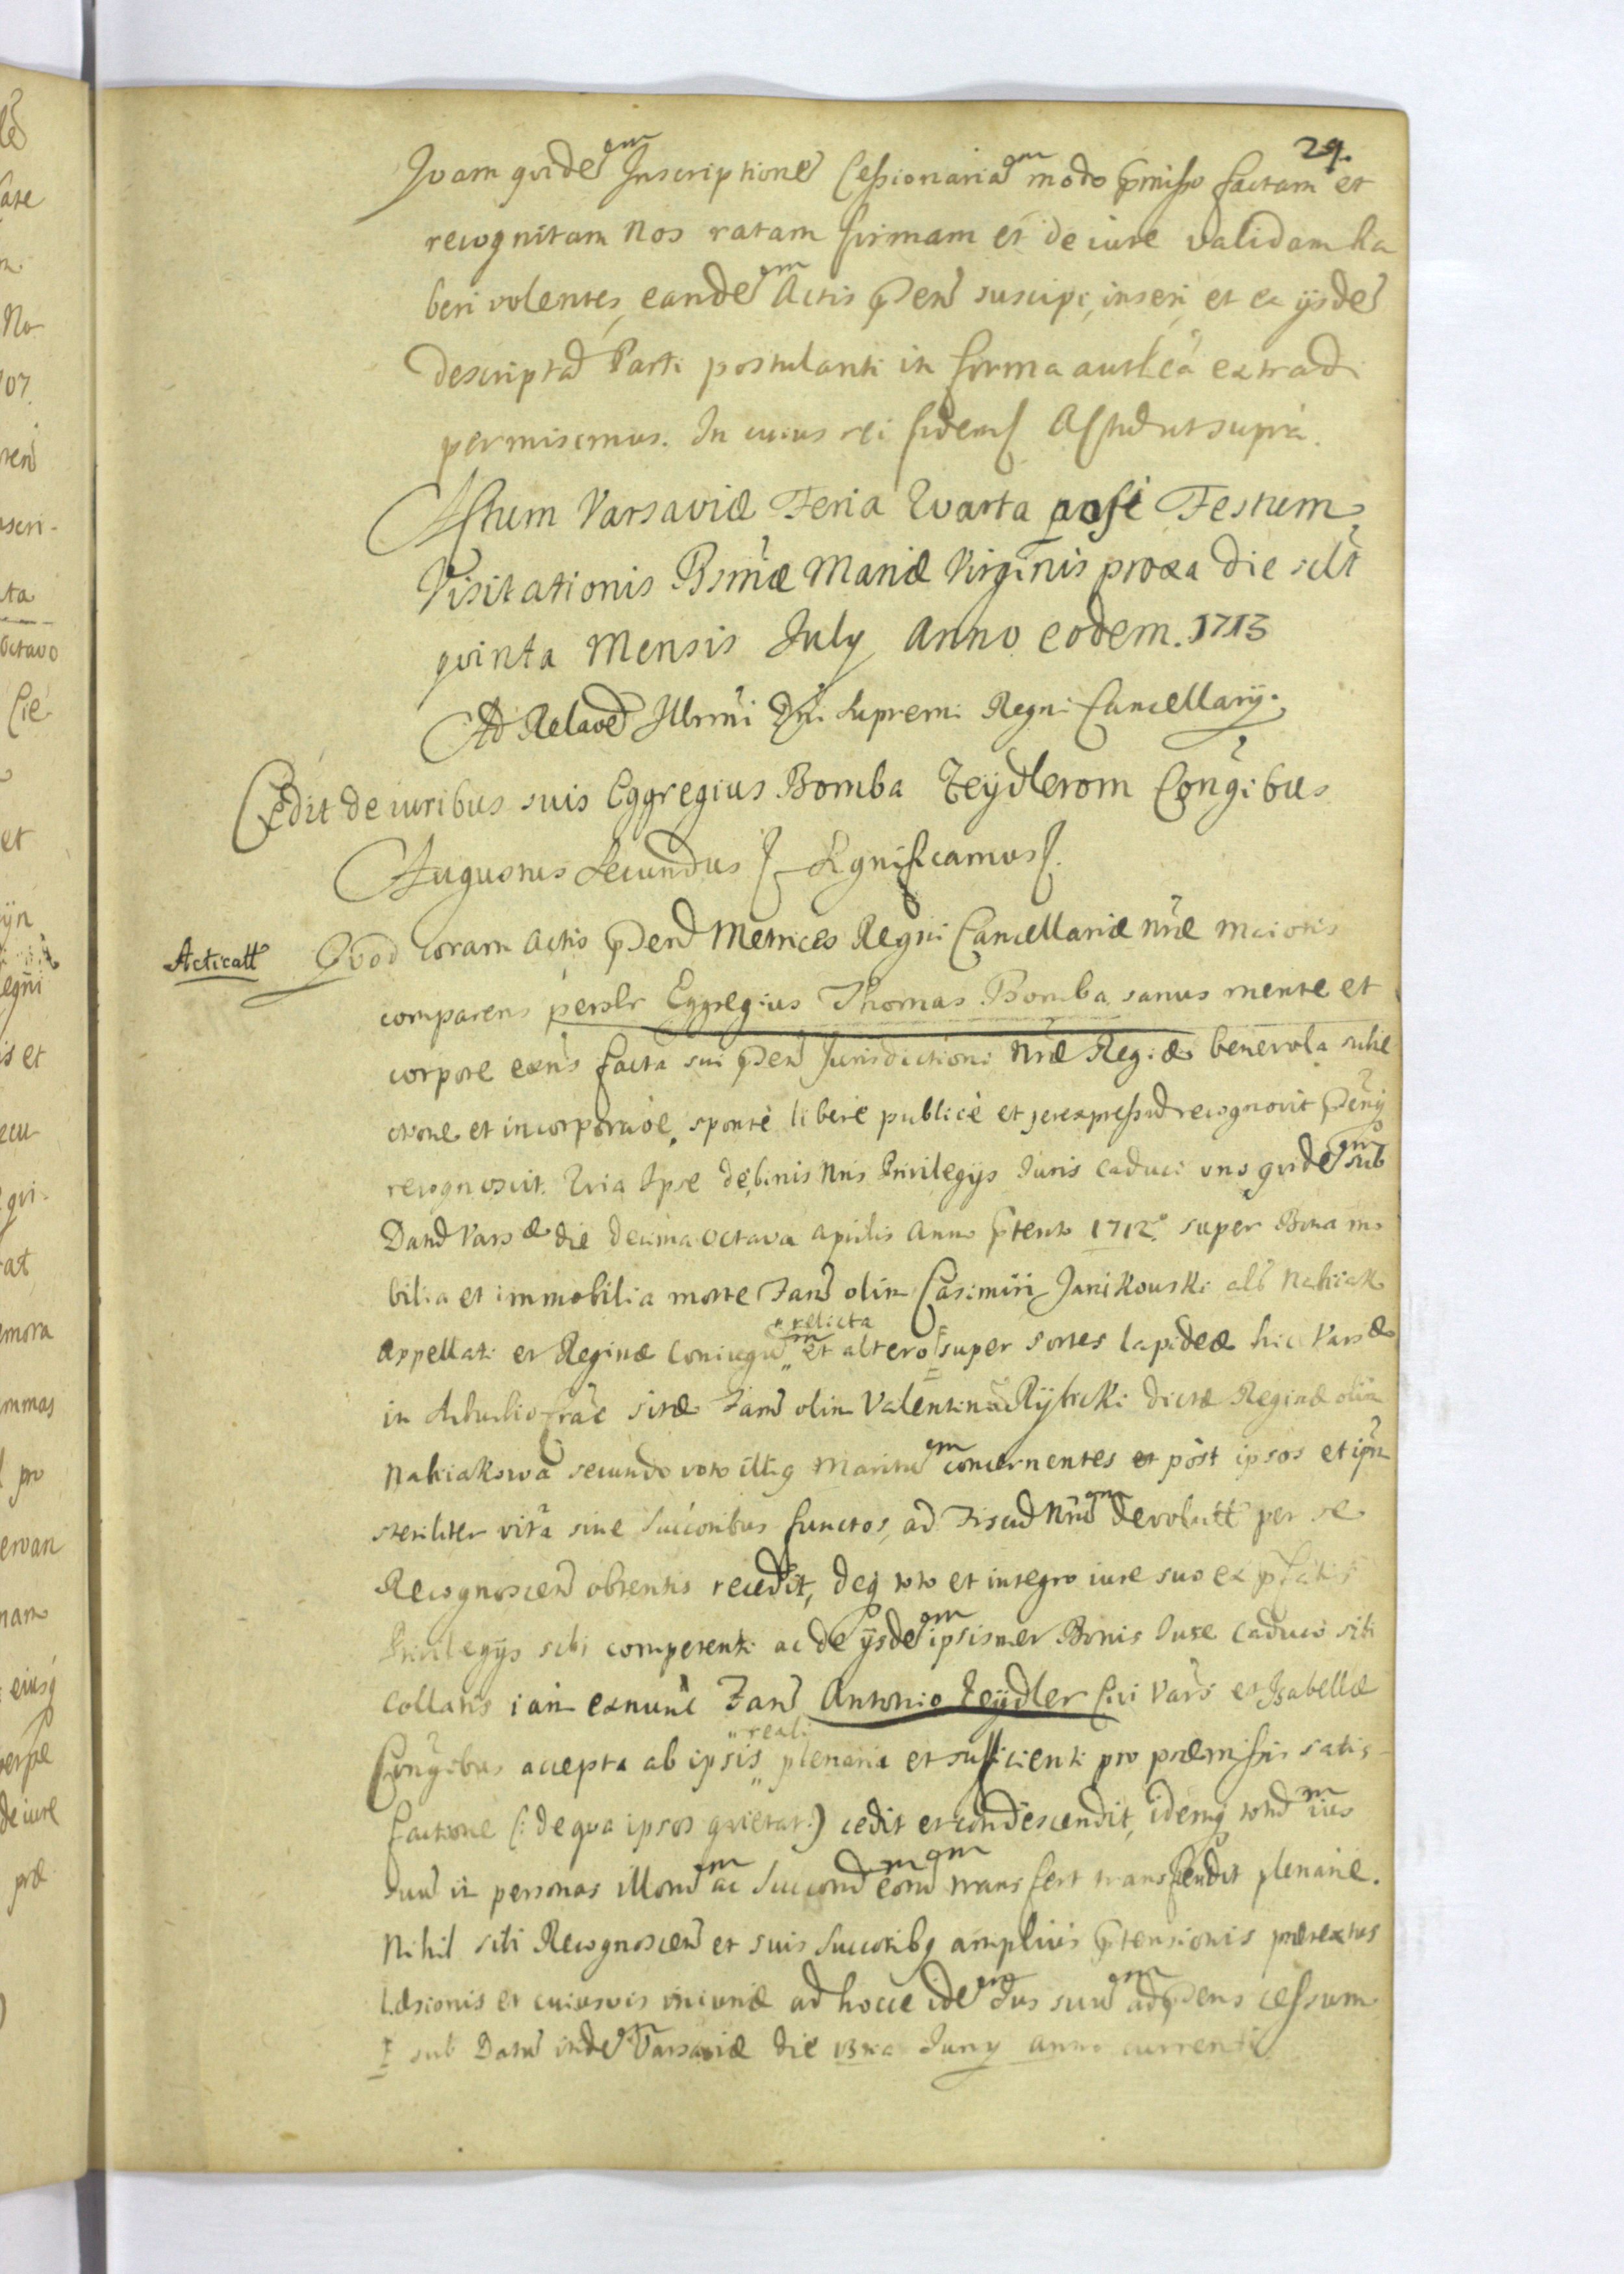 29.
Quam quidem Inscriptionem Cessionariam modo pmisso factam et
recognitam Nos ratam firmam et de iure validam ha
beri volentes, eandem Actis pñ suscipi, inseri, et ex ijsdẽ
descriptã Parti postulanti in forma authẽa extradi
permisimus. In cuius rei fidem Actũ ut supra.
Actum Varsaviæ Feria Quarta post Festum
Visitationis Bsmæ Mariæ Virginis proxa die sclt
quinta Mensis July Anno eodem. 1713
Ad Relaoẽ Illrmi Dñi Supremi Regni Cancellarij.
Cedit de iuribus suis Eggregius Bomba Zeydlerom Congibus
Augustus Secundus Significamus
Acticatt
Quod coram Actis pñ Metrices Regni Cancellariæ nræ maioris
comparens persl̃r Eggregius Thomas Bomba sanus mente et
corpore exñs facta sui pñ Jurisdictioni Nræ Regiæ benevola subie
ctione et incorporaõe, sponte libere publicè et per expressũ recognovit
recognoscit. Quia Ipse de binis Nris Privilegijs Juris caduci uno quidem sub
Datũ Varsæ die decima octava Aprilis Anno 1712º super Bona mo
bilia et immobilia morte Fam̃ olim Casimiri Janikowski als Nakiak
relicta
Appellati et Reginæ Coniugũ et altero super sortes lapideæ hic Varsæ
in sitæ Fam̃ olim Valentinũ Rybicki dictæ Reginæ olim
Nakiakowa secundo voto illiq Maritum concernentes et post ipsos et ipm
steriliter vita sine Succoribus functos, ad Fiscũ Nrm devolutt per se
Recognoscen obtentis recedit, deq toto et integro iure suo ex
Privilegijs sibi competenti ac de ijsdem ipsismet Bonis Jure caduco sibi
collatis iam exnunc Fam̃ Antonio Zeydler Civi Vars et Isabellæ
reali
Congibus accepta ab ipsis plenaria et sufficienti pro præmissis satis-
factione (: de qua ipsos quietat :) cedit et condescendit, idemq totũ ius
suũ in personas illorum ac Succorũ eorum transfert transfundit plenarie.
Nihil sibi Recognoscen et suis Succoribq amplius ptensionis prætextus
læsionis et cuiusvis iniuriæ ad hocce idem Jus suum ad pñs cessum
sub Datũ indem Varsaviæ die 13tia Juny anno currenti